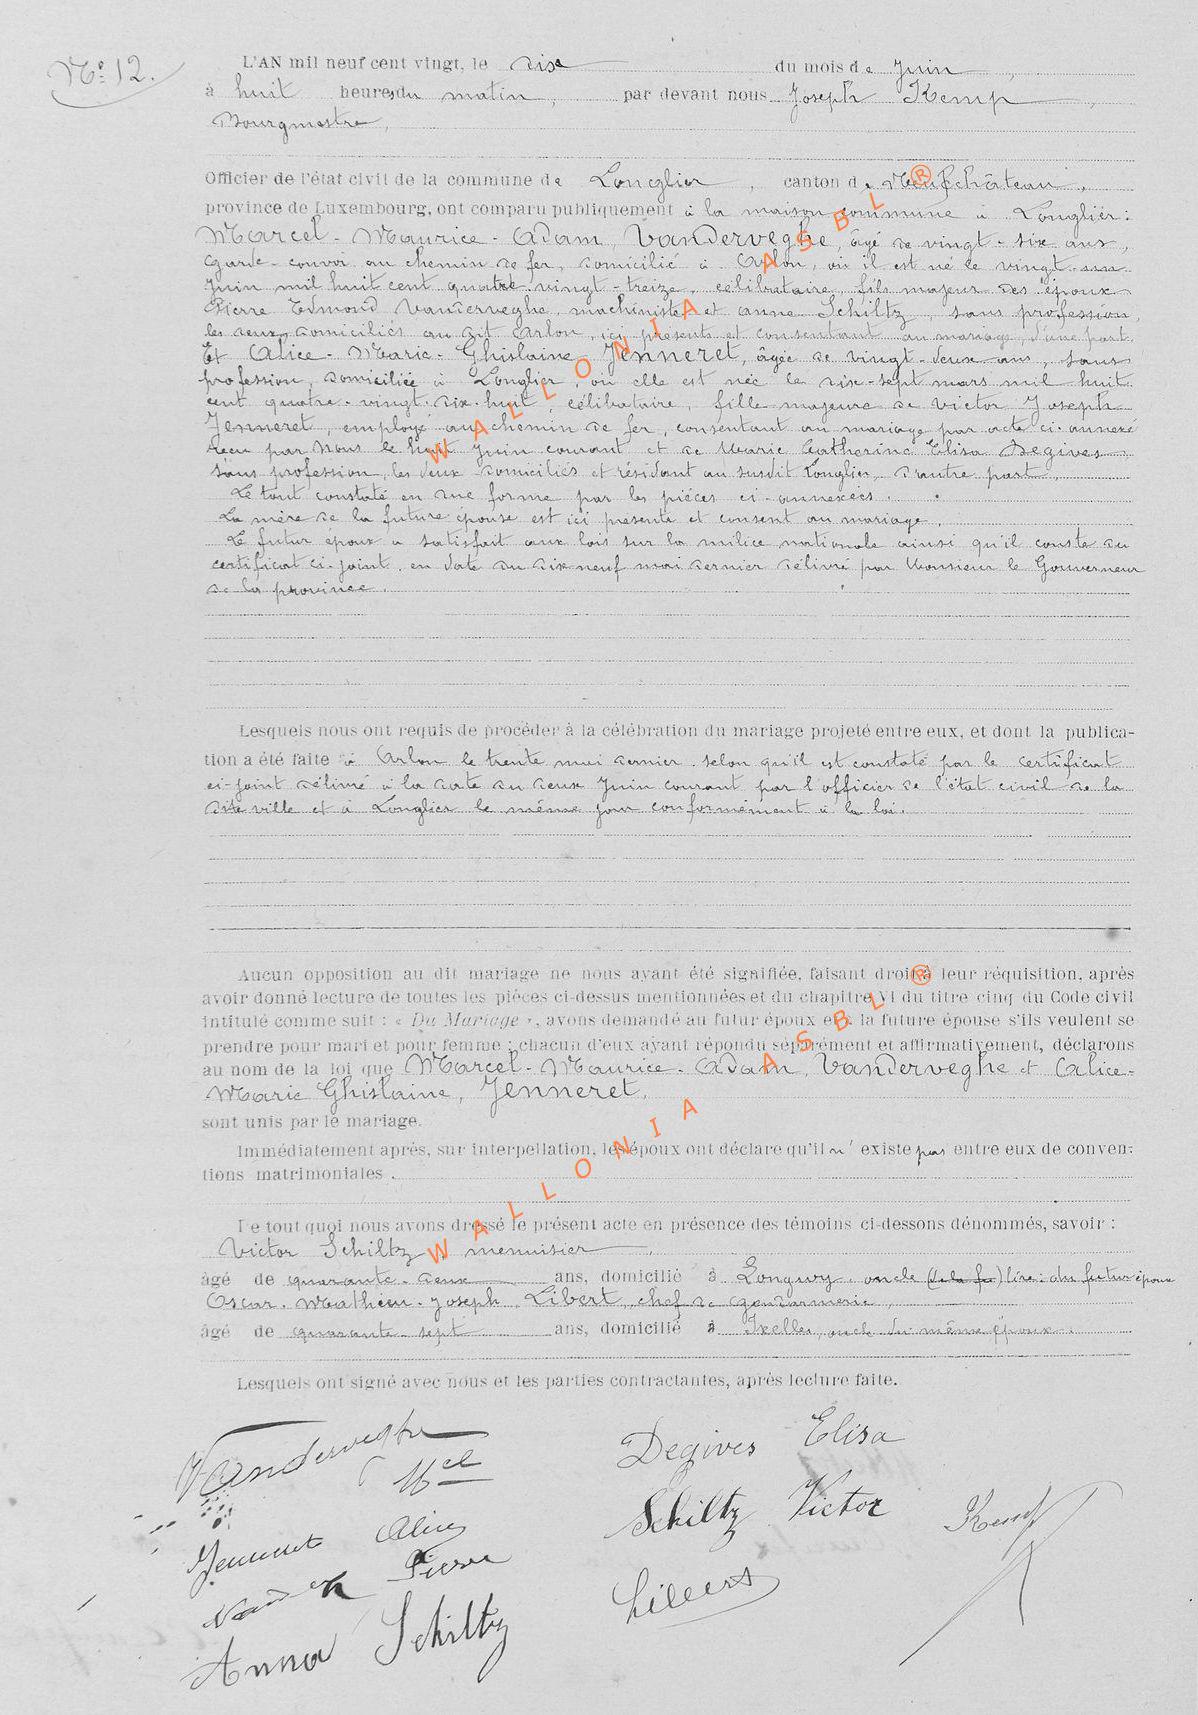 N° 12.
L'AN mil neuf cent vingt, le dix du mois de Juin,
à huit heures du matin, par devant nous Joseph Kemp,
Bourgmestre,
Officier de l'état civil de la commune de Longlier, canton de Neufchâteau,
province de Luxembourg, ont comparu publiquement à la maison commune à Longlier:
Marcel-Maurice-Adam Vanderveghe, âgé de vingt-six ans,
garde-convoi au chemin de fer, domicilié à Arlon, où il est né le vingt-un
Juin mil huit cent quatre-vingt-treize, célibataire, fils majeur des époux
Pierre Edmond Vanderveghe, machiniste et Anne Schiltz, sans profession,
les deux domiciliés au dit Arlon, ici présents et consentant au mariage, d'une part.
Et Alice-Marie-Ghislaine Jenneret, âgée de vingt-deux ans, sans
profession, domiciliée à Longlier, où elle est née le dix-sept mars mil huit
cent quatre-vingt-dix-huit, célibataire, fille majeure de Victor Joseph
Jenneret, employé au chemin de fer, consentant au mariage par acte ci-annexé
reçu par Nous le huit Juin courant et de Marie Catherine Elisa Degives
sans profession, les deux domiciliés et résidant au susdit Longlier, d'autre part.
Le tout constaté en due forme par les pièces ci-annexées.
La mère de la future épouse est ici présente et consent au mariage.
Le futur époux a satisfait aux lois sur la milice nationale ainsi qu'il conste du
certificat ci-joint, en date du dix neuf mai dernier délivré par Monsieur le Gouverneur
de la province.
Lesquels nous ont requis de procéder à la célébration du mariage projeté entre eux, et dont la publica-
tion a été faite à Arlon le trente mai dernier selon qu'il est constaté par le certificat
ci-joint délivré à la date du deux Juin courant par l'officier de l'état civil de la
dite ville et à Longlier le même jour conformément à la loi.
Aucun opposition au dit mariage ne nous ayant été signifiée, faisant droit à leur réquisition, après
avoir donné lecture de toutes les pièces ci-dessus mentionnées et du chapitre VI du titre cinq du Code civil
intitulé comme suit : « Du Mariage », avons demandé au futur époux et à la future épouse s'ils veulent se
prendre pour mari et pour femme ; chacun d'eux ayant répondu séparément et affirmativement, déclarons
au nom de la loi que Marcel-Maurice-Adam Vanderveghe et Alice-
Marie Ghislaine, Jenneret,
sont unis par le mariage.
Immédiatement après, sur interpellation, les époux ont déclare qu'il n'existe pas entre eux de conven-
tions matrimoniales.
Le tout quoi nous avons dressé le présent acte en présence des témoins ci-dessons dénommés, savoir :
Victor Schiltz, menuisier,
âgé de quarante-deux ans, domicilié à Longwy, oncle (de la fu) lire: du futur époux
Oscar-Mathieu-Joseph Libert, chef de gendarmerie,
âgé de quarante-sept ans, domicilié à Ixelles, oncle du même époux.
Lesquels ont signé avec nous et les parties contractantes, après lecture faite.
Vanderveghe Mcel
Degives Elisa
Schiltz Victor
Kemp
Jenneret Alice
Pierre
Anna Schiltz
WALLONIA ASBL ®
WALLONIA ASBL ®